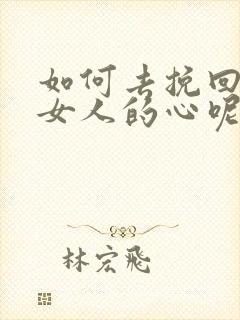 如何去挽回
女人的心呢
林宏飛